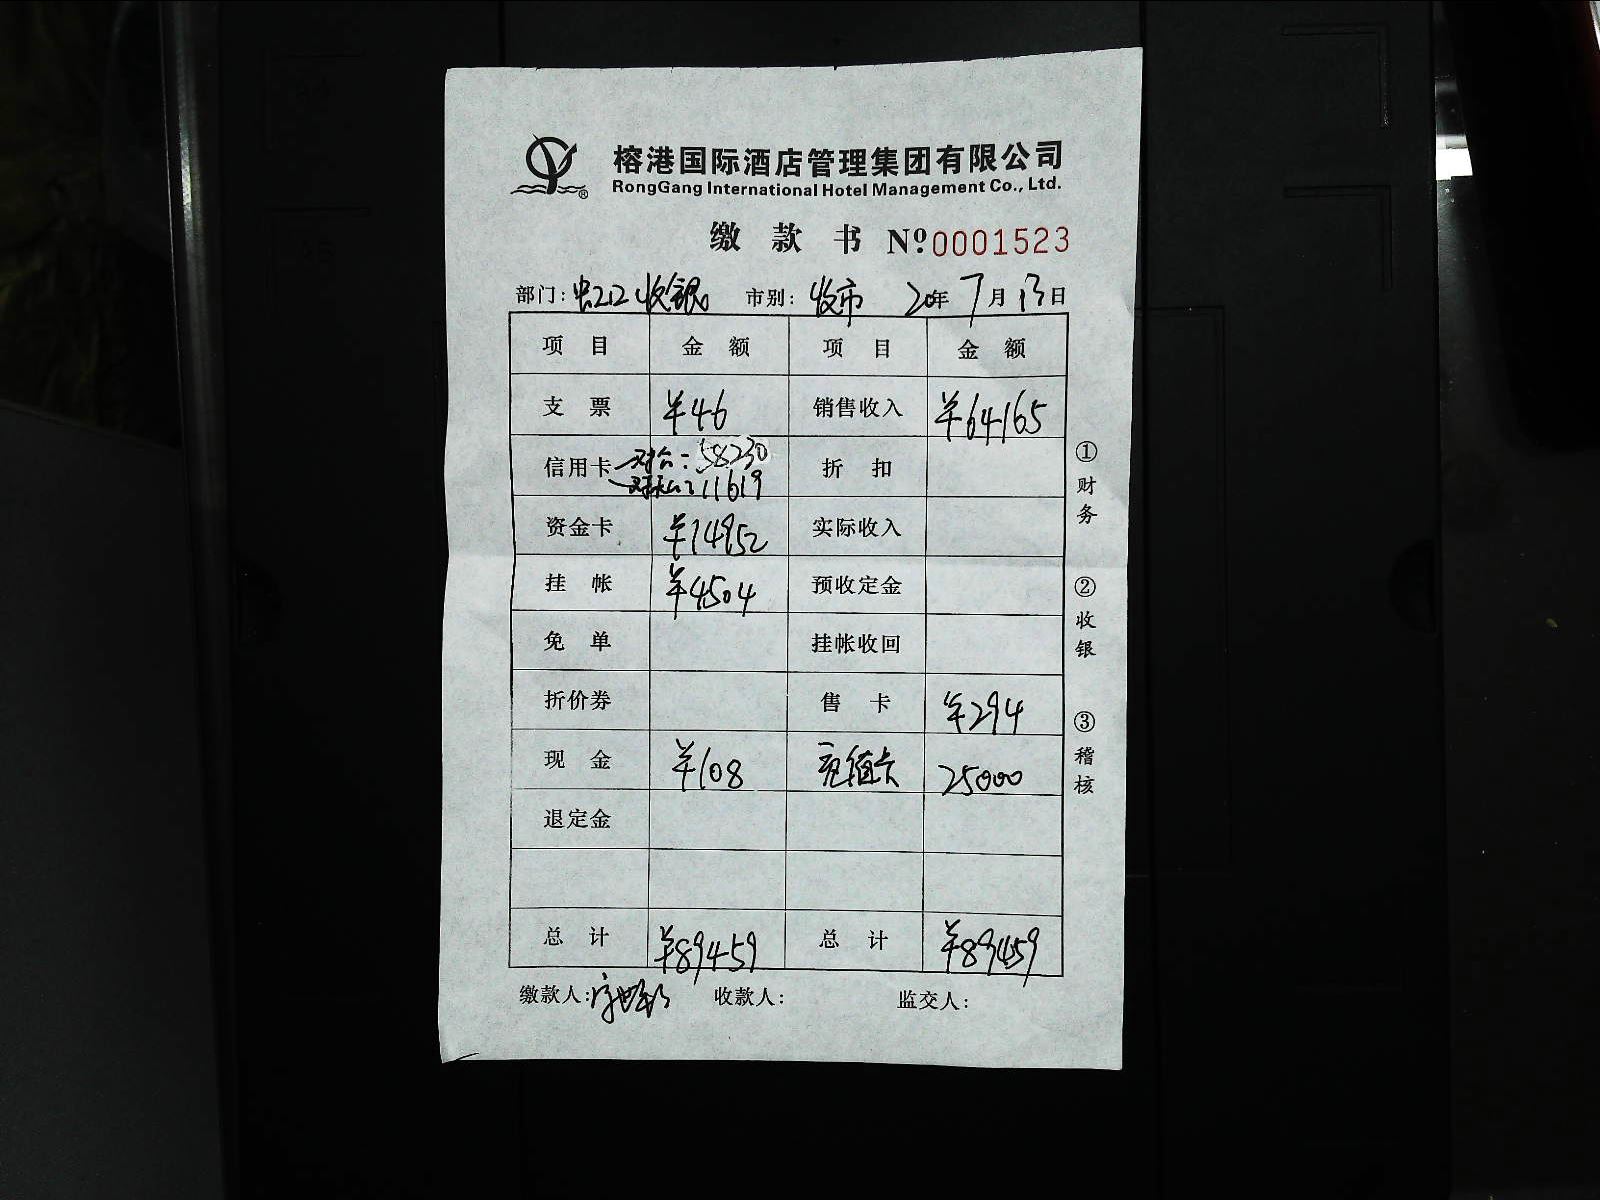 榕港国际酒店管理集团有限公司
RongGang International Hotel Management Co., Ltd.
缴款书 Nº 0001523
部门: 虹口收银 市别: 收市 20年7月13日
项目 金额 项目 金额
支票 ¥46 销售收入 ¥64165
信用卡 58230 折扣
11619
资金卡 ¥14952 实际收入
挂帐 ¥4504 预收定金
免单 挂帐收回
折价券 售卡 ¥294
现金 ¥108 充值卡 25000
退定金
总计 ¥89459 总计 ¥89459
缴款人: 收款人: 监交人:
①财务
②收银
③稽核